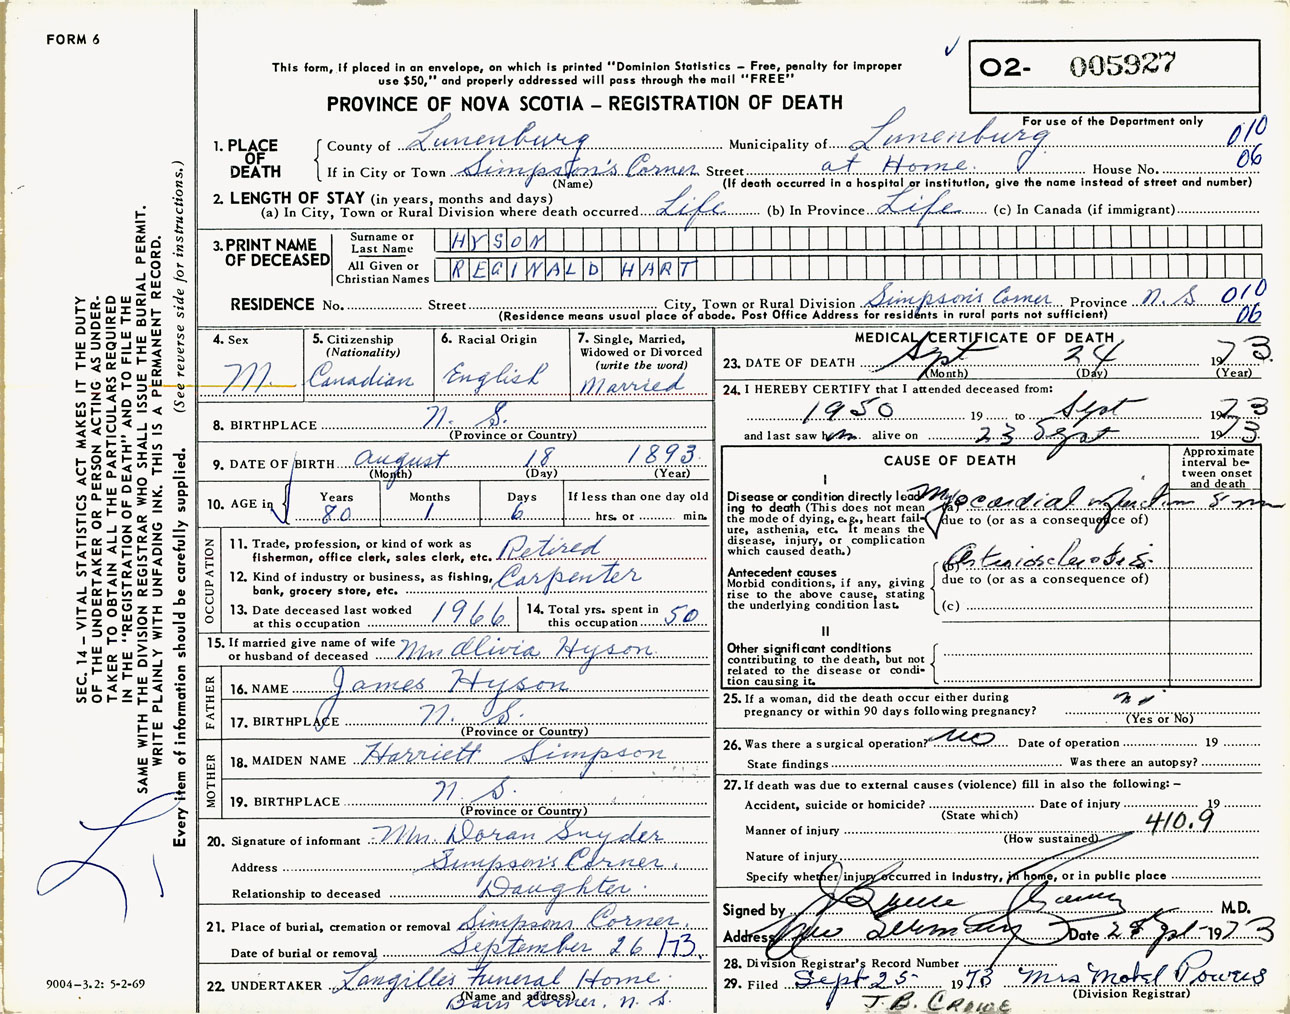 FORM 6
This form, if placed in an envelope, on which is printed "Dominion Statistics – Free, penalty for improper
use $50," and properly addressed will pass through the mail "FREE"
O2- 005927
PROVINCE OF NOVA SCOTIA – REGISTRATION OF DEATH
For use of the Department only
1. PLACE OF DEATH County of Lunenburg Municipality of Lunenburg 010
If in City or Town Simpson's Corner Street at Home. House No. 06
(Name) (If death occurred in a hospital or institution, give the name instead of street and number)
2. LENGTH OF STAY (in years, months and days)
(a) In City, Town or Rural Division where death occurred Life (b) In Province Life (c) In Canada (if immigrant)
3. PRINT NAME OF DECEASED
Surname or Last Name HYSON
All Given or Christian Names REGINALD HART
RESIDENCE No. Street City, Town or Rural Division Simpson's Corner Province N.S. 010
(Residence means usual place of abode. Post Office Address for residents in rural parts not sufficient) 06
4. Sex M.
5. Citizenship (Nationality) Canadian
6. Racial Origin English
7. Single, Married, Widowed or Divorced (write the word) Married
8. BIRTHPLACE N. S.
(Province or Country)
9. DATE OF BIRTH August 18 1893
(Month) (Day) (Year)
10. AGE in Years 80 Months 1 Days 6 If less than one day old hrs. or min.
OCCUPATION
11. Trade, profession, or kind of work as fisherman, office clerk, sales clerk, etc. Retired
12. Kind of industry or business, as fishing, bank, grocery store, etc. Carpenter
13. Date deceased last worked at this occupation 1966
14. Total yrs. spent in this occupation 50
15. If married give name of wife or husband of deceased Mrs Olivia Hyson
FATHER
16. NAME James Hyson
17. BIRTHPLACE N. S.
(Province or Country)
MOTHER
18. MAIDEN NAME Harriett Simpson
19. BIRTHPLACE N. S.
(Province or Country)
20. Signature of informant Mrs. Doran Snyder
Address Simpson's Corner.
Relationship to deceased Daughter.
21. Place of burial, cremation or removal Simpsons Corner
Date of burial or removal September 26 /73.
22. UNDERTAKER Langilles Funeral Home
(Name and address) Corner, N. S.
MEDICAL CERTIFICATE OF DEATH
23. DATE OF DEATH Sept 24 1973
(Month) (Day) (Year)
24. I HEREBY CERTIFY that I attended deceased from:
1950 19 to Sept 1973
and last saw him alive on 23 Sept 1973
CAUSE OF DEATH
Approximate interval between onset and death
I
Disease or condition directly leading to death (This does not mean the mode of dying, e.g., heart failure, asthenia, etc. It means the disease, injury, or complication which caused death.)
(a) Myocardial infarction 5 min
due to (or as a consequence of)
Antecedent causes
Morbid conditions, if any, giving rise to the above cause, stating the underlying condition last.
(b) Arteriosclerotis
due to (or as a consequence of)
(c)
II
Other significant conditions contributing to the death, but not related to the disease or condition causing it.
25. If a woman, did the death occur either during pregnancy or within 90 days following pregnancy?
(Yes or No)
26. Was there a surgical operation? no Date of operation 19
State findings Was there an autopsy?
27. If death was due to external causes (violence) fill in also the following: –
Accident, suicide or homicide? Date of injury 19
(State which)
Manner of injury 410.9
(How sustained)
Nature of injury
Specify whether injury occurred in industry, in home, or in public place
Signed by M.D.
Address New Germany Date 1973
28. Division Registrar's Record Number
29. Filed Sept 25 1973 Mrs Powers
(Division Registrar)
J.B. CROWE
SEC. 14 – VITAL STATISTICS ACT MAKES IT THE DUTY
OF THE UNDERTAKER OR PERSON ACTING AS UNDERTAKER
TO OBTAIN ALL THE PARTICULARS REQUIRED
IN THE "REGISTRATION OF DEATH" AND TO FILE THE
SAME WITH THE DIVISION REGISTRAR WHO SHALL ISSUE THE BURIAL PERMIT.
WRITE PLAINLY WITH UNFADING INK. THIS IS A PERMANENT RECORD.
Every item of information should be carefully supplied. (See reverse side for instructions.)
9004-3.2: 5-2-69